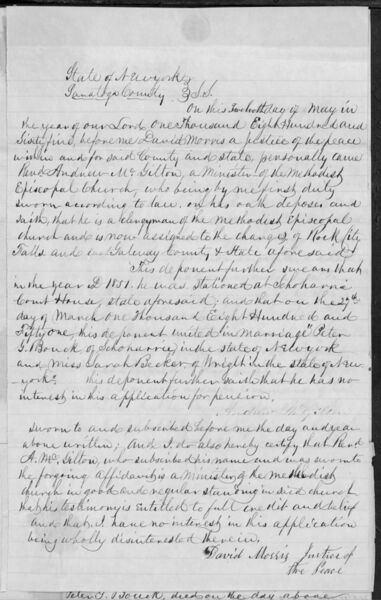 State of New york
Saratoga County } S.S.
On this twelfth day of May in
the year of our Lord One Thousand Eight Hundred and
Sixty five, before me David Morris a justice of the peace
within and for said County and state, personally came
Revd Andrew Mc Gilton, a Minister of the Methodist
Episcopal Church, who being by me first duty
sworn according to law, on his oath deposes and
saith, that he is a clergyman of the Methodist Episcopal
church and is now assigned to the charges of Rock City
Falls and East Galway County & State afore said
This deponent further swears that
in the year D 1851. he was stationed at Schoharie
Court House, state aforesaid; and that on the 27th
day of March One Thousand Eight Hundred and
Fifty one, this deponent united in marriage Peter
G. Bouck, of Schoharrie, in the state of New york
and Miss Sarah Becker, of Wright in the state of New-
york. This deponent further saith that he has no
interest in this application for pension.
Andrew McGilton
sworn to and subscribed before me the day and year
above written; And I do also hereby certify that Revd
A. Mc Gilton, who subscribed his name and was sworn to
the forgoing affidavit is a Minister of the methodish
church in good and regular standing in said church
that his testimony is entitled to full credit and belief
and that I have no interest in this application
being wholly disinterested therein.
David Morris Justice of
the Peace
Peter G. Bouck, died on the day above